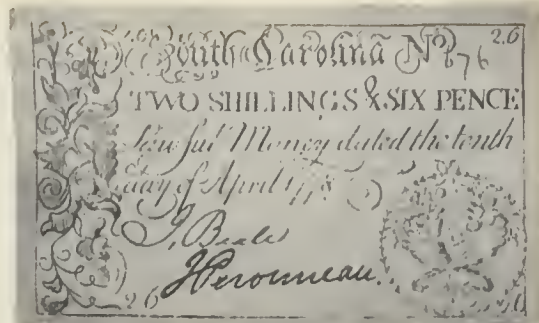 2.6
South Carolina No. 676
TWO SHILLINGS & SIX PENCE
Lawful Money dated the tenth
day of April 1778
J. Beale
Peronneau.
26